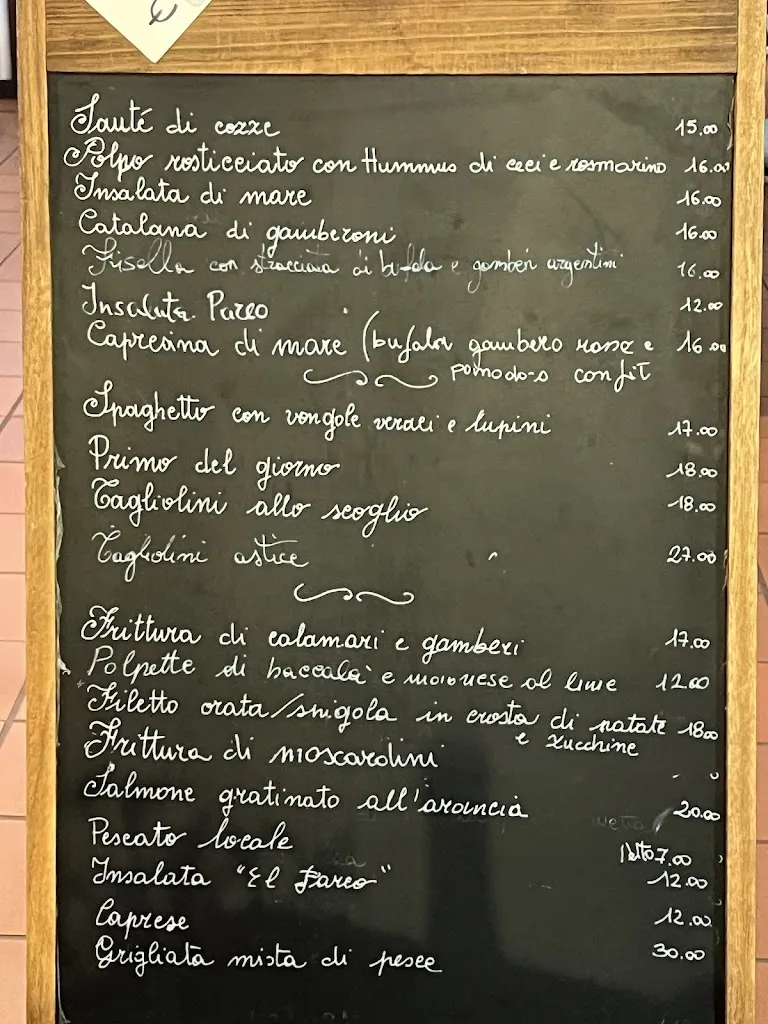 €
Sauté di cozze 15.00
Polpo rosticciato con Hummus di ceci e rosmarino 16.00
Insalata di mare 16.00
Catalana di gamberoni 16.00
Frisella con stracciata di bufala e gamberi argentini 16.00
Insalata Pareo 12.00
Capresina di mare (bufala gambero rosso e 16.00
pomodoro confit
Spaghetto con vongole veraci e lupini 17.00
Primo del giorno 18.00
Tagliolini allo scoglio 18.00
Tagliolini astice 27.00
Frittura di calamari e gamberi 17.00
Polpette di baccalà e maionese al lime 12.00
Filetto orata/spigola in crosta di patate 18.00
e zucchine
Frittura di moscardini
Salmone gratinato all'arancia 20.00
Pescato locale l'etto 7.00
Insalata "El Pareo" 12.00
Caprese 12.00
Grigliata mista di pesce 30.00